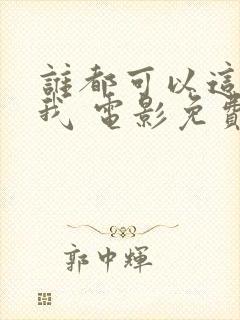 誰都可以這
我 電影免費
郭中輝